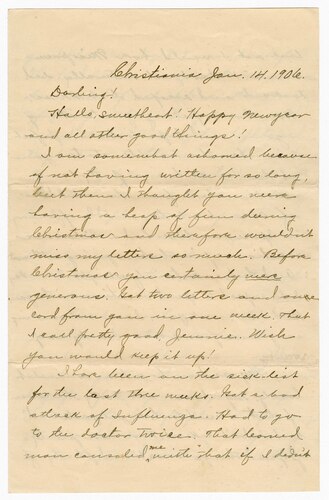 Christiania Jan. 14. 1906.
Darling!
Hallo, sweetheart! Happy Newyear
and all other good things!
I am somewhat ashamed because
of not having written for so long,
but then I thought you were
having a heap of fun during
Christmas and therefore wouldn't
miss my letters so much. Before
Christmas you certainly were
generous. Got two letters and one
card from you in one week. That
I call pretty good, Jennie. Wish
you would keep it up!
I have been on the sick list
for the last three weeks. Got a bad
attack of Influenza. Had to go
to the doctor twice. That learned
man consoled me with that if I didn't